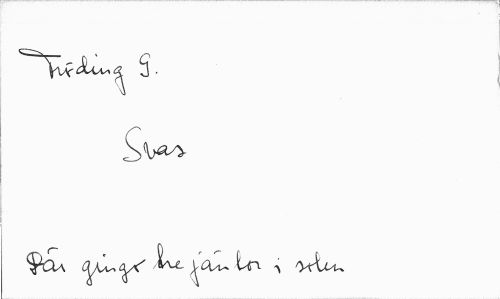 Fröding G.
Svas
Där gingo tre jäntor i solen